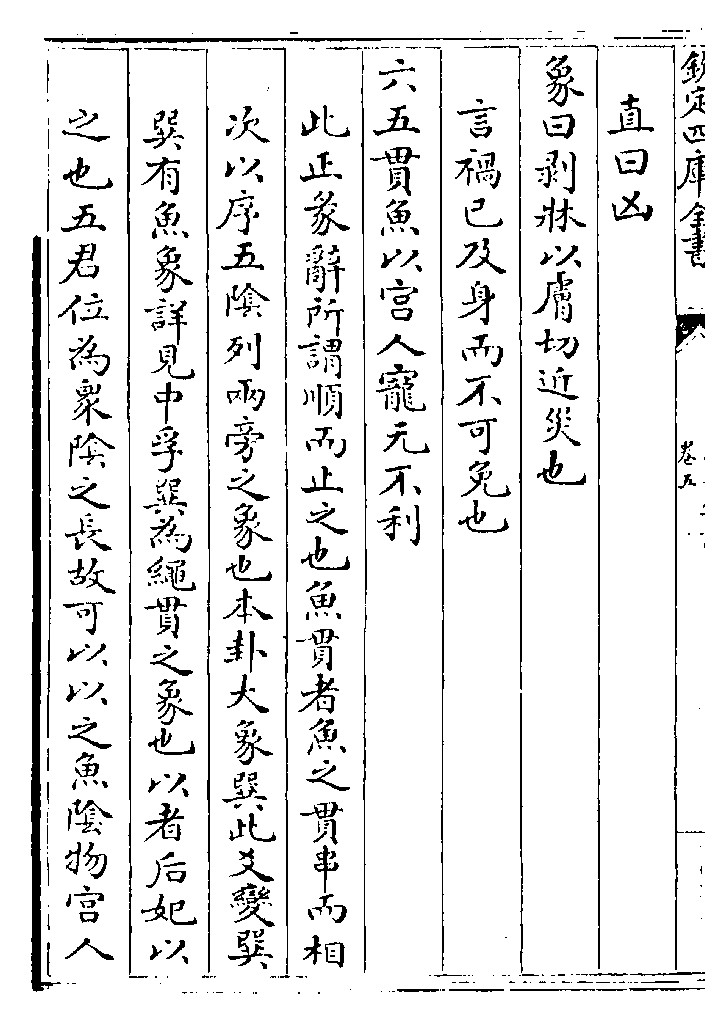 欽定四庫全書
卷五
直曰凶
象曰剥牀以膚切近災也
言禍已及身而不可免也
六五貫魚以宫人寵无不利
此正彖辭所謂順而止之也魚貫者魚之貫串而相
次以序五陰列兩旁之象也本卦大象巽此爻變巽
巽有魚象詳見中孚巽為繩貫之象也以者后妃以
之也五君位為衆陰之長故可以以之魚陰物宫人